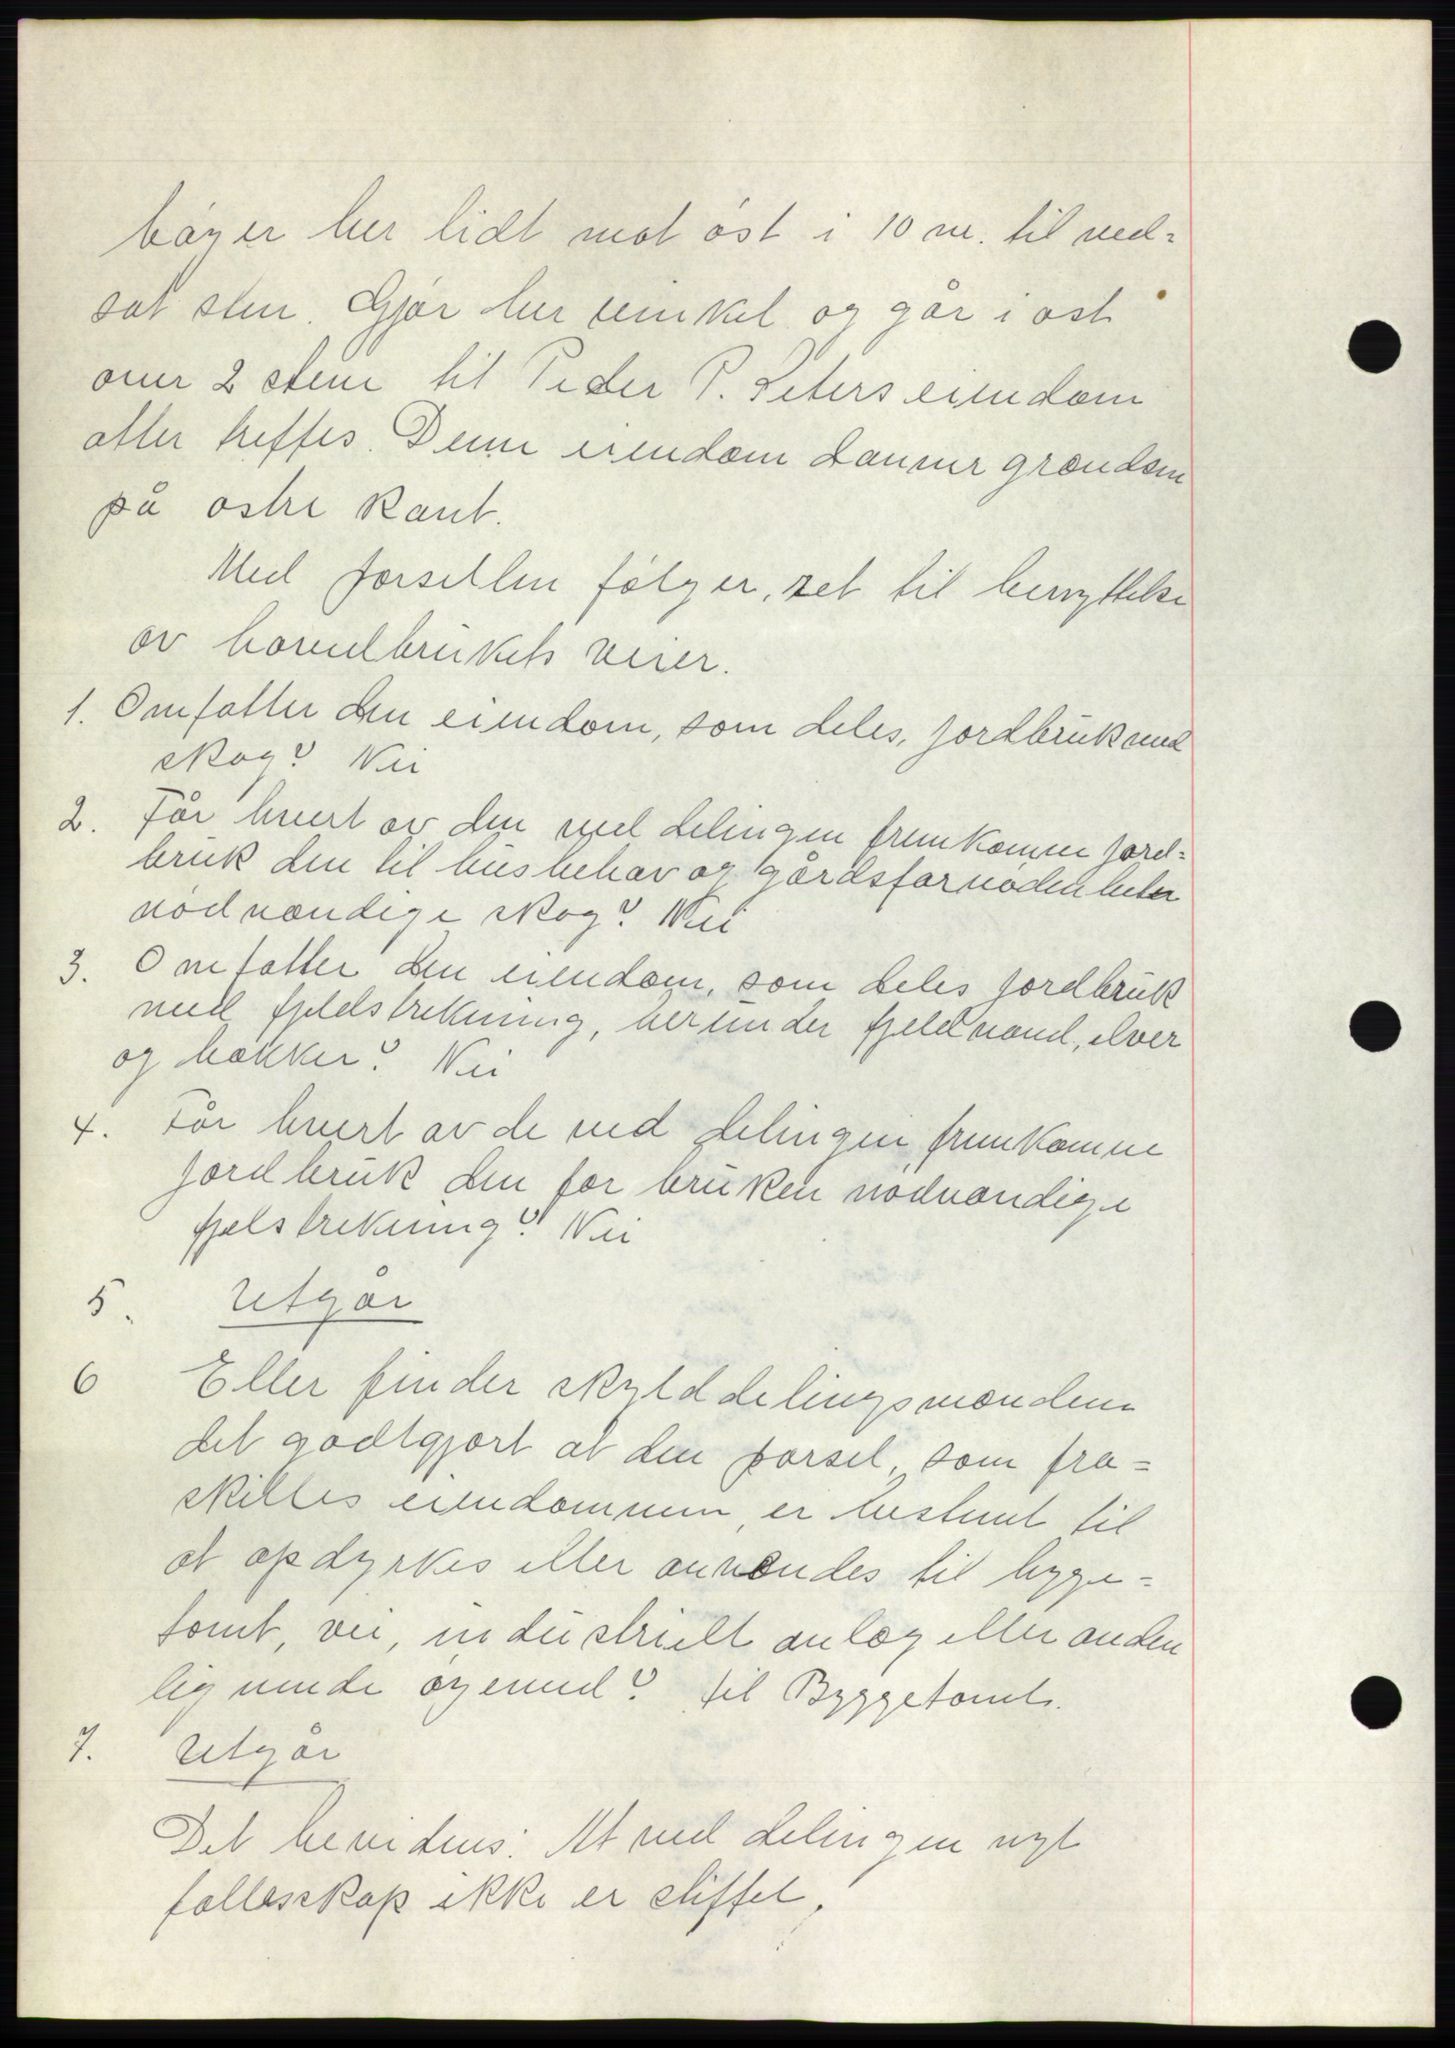 bøyer her lidt mot øst i 10 m. til ned-
sat sten. Gjør her vinkel og går i øst
over 2 stene til Peder P. Seters eiendom
atter treffes. Denne eiendom danner grændsen
på østre kant.
Med parsellen følger, ret til benyttelse
av hovedbrukets veier.
1. Omfatter den eiendom, som deles, jordbruk med
skog? Nei
2. Får hvert av den ved delingen fremkomne jord-
bruk den til husbehov og gårdsfornødenheter
nødvændige skog? Nei
3. Omfatter den eiendom, som deles jordbruk
med fjeldstrekning, herunder fjeldvand, elver
og bækker? Nei
4. Får hvert av de ved delingen fremkomne
jordbruk den for bruken nødvændige
fjelstrekning? Nei
5. Utgår
6 Eller finder skylddelingsmændene
det godtgjort at den parsel, som fra-
skilles eiendommen, er bestemt til
at opdyrkes eller anvendes til bygge-
tomt, vei, industrielt anlæg eller anden
lignende øyemed? til Byggetomt.
7. Utgår
Det bevidnes: At ved delingen nyt
fællesskap ikke er stiftet.